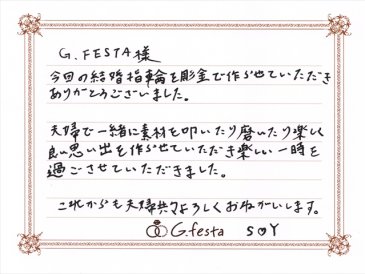 G.FESTA様
今回の結婚指輪を彫金で作らせていただき
ありがとうございました。
夫婦で一緒に素材を叩いたり磨いたり楽しく
良い思い出を作らせていただき楽しい一時を
過ごさせていただきました。
これからも夫婦共々よろしくおねがいします。
G.festa SOY